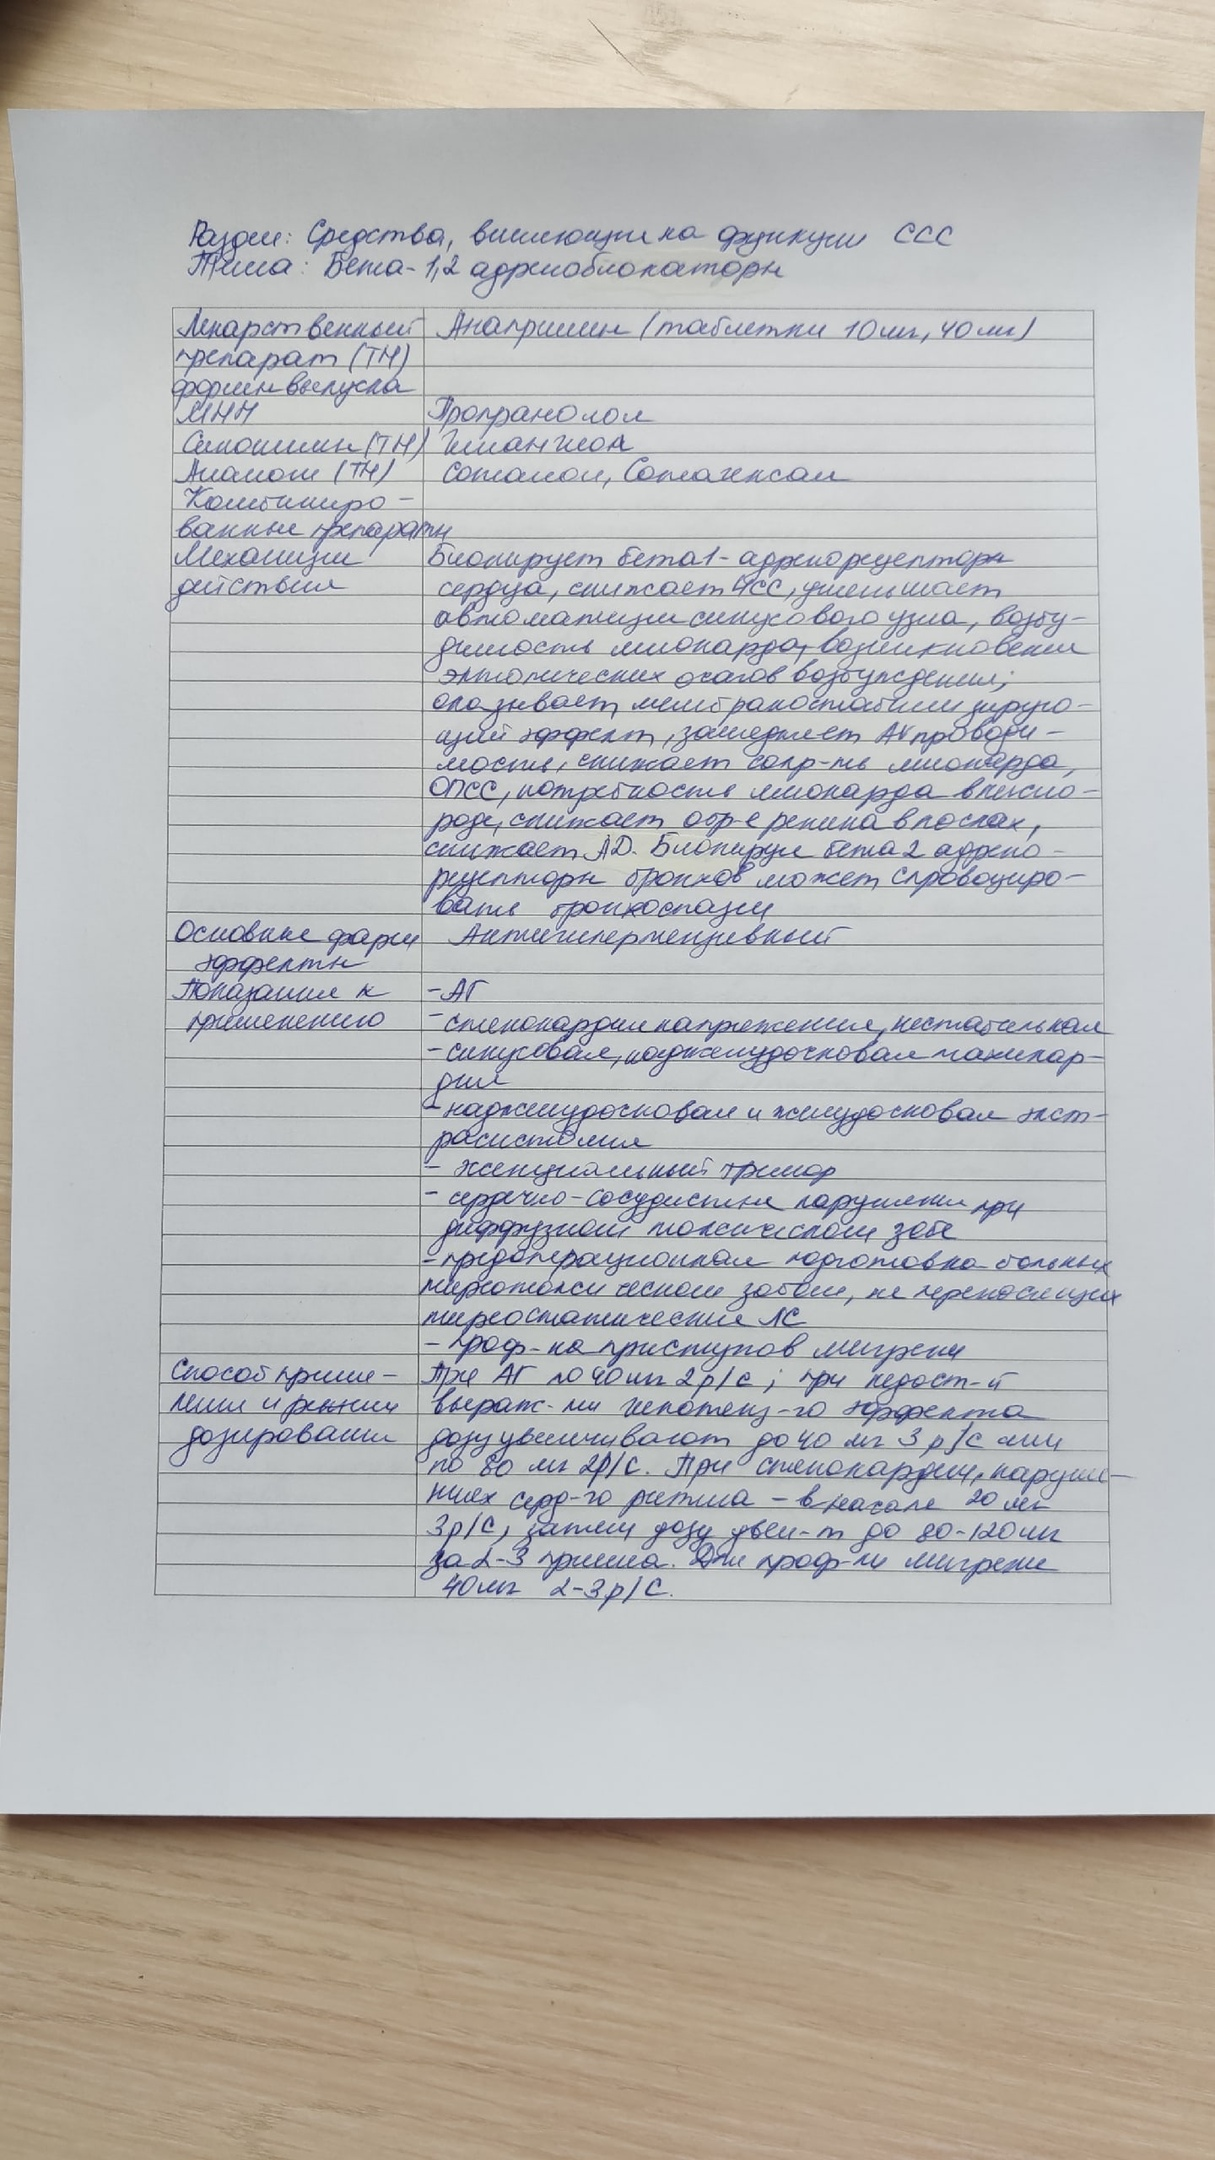 Раздел: Средства, влияющие на функции ССС
Тема: Бета-1,2 адреноблокаторы
Лекарственный препарат (ТН) формы выпуска
Анаприлин (таблетки 10 мг, 40 мг)
МНН
Пропранолол
Синонимы (ТН)
Гемангиол
Аналоги (ТН)
Соталол, Сотагексал
Комбиниро-
ванные препараты
Механизм
действия
Блокирует бета1-адренорецепторы
сердца, снижает ЧСС, уменьшает
автоматизм синусового узла, возбу-
димость миокарда, возникновение
эктопических очагов возбуждения;
оказывает мембраностабилизирую-
щий эффект, замедляет АV проводи-
мость, снижает сокр-ть миокарда,
ОПСС, потребность миокарда в кисло-
роде, снижает обр-е ренина в почках,
снижает АД. Блокируя бета2 адрено-
рецепторы бронхов может спровоциро-
вать бронхоспазм
Основные фарм
эффекты
Антигипертензивный
Показания к
применению
- АГ
- стенокардия напряжения, нестабильная
- синусовая, наджелудочковая тахикар-
дия
- наджелудочковая и желудочковая экст-
расистолия
- эссенциальный тремор
- сердечно-сосудистые нарушения при
диффузном токсическом зобе
- предоперационная подготовка больных
тиреотоксическим зобом, не переносящих
тиреостатические ЛС
- проф-ка приступов мигрени
Способ приме-
нения и режим
дозирования
При АГ по 40 мг 2 р/с; при недост-й
выраж-ти гипотенз-го эффекта
дозу увеличивают до 40 мг 3 р/с или
по 80 мг 2 р/с. При стенокардии, наруше-
ниях серд-го ритма - в начале 20 мг
3 р/с, затем дозу увел-т до 80-120 мг
за 2-3 приема. Для проф-ки мигрени
40 мг 2-3 р/с.